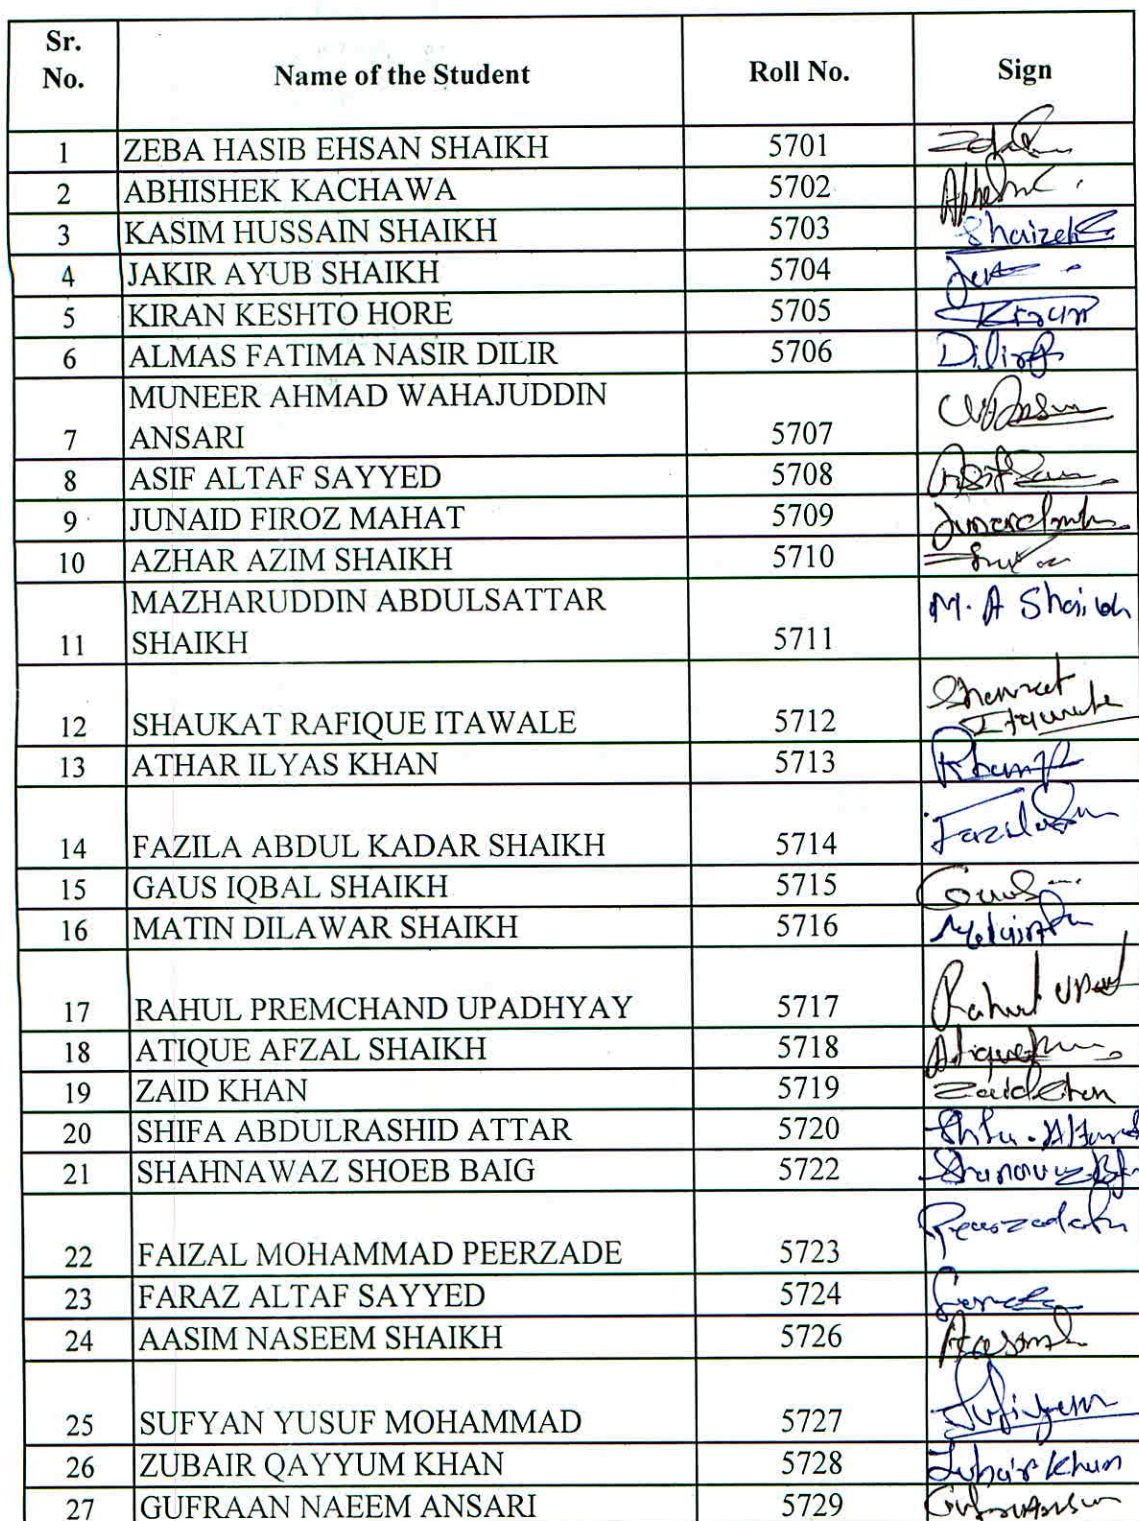 Sr. No. Name of the Student Roll No. Sign
1 ZEBA HASIB EHSAN SHAIKH 5701
2 ABHISHEK KACHAWA 5702
3 KASIM HUSSAIN SHAIKH 5703
4 JAKIR AYUB SHAIKH 5704
5 KIRAN KESHTO HORE 5705 Kiran
6 ALMAS FATIMA NASIR DILIR 5706
MUNEER AHMAD WAHAJUDDIN
7 ANSARI 5707
8 ASIF ALTAF SAYYED 5708
9 JUNAID FIROZ MAHAT 5709
10 AZHAR AZIM SHAIKH 5710
MAZHARUDDIN ABDULSATTAR M. A Shaikh
11 SHAIKH 5711
12 SHAUKAT RAFIQUE ITAWALE 5712
13 ATHAR ILYAS KHAN 5713
14 FAZILA ABDUL KADAR SHAIKH 5714
15 GAUS IQBAL SHAIKH 5715
16 MATIN DILAWAR SHAIKH 5716
17 RAHUL PREMCHAND UPADHYAY 5717 Rahul
18 ATIQUE AFZAL SHAIKH 5718
19 ZAID KHAN 5719 Zaid Khan
20 SHIFA ABDULRASHID ATTAR 5720
21 SHAHNAWAZ SHOEB BAIG 5722
22 FAIZAL MOHAMMAD PEERZADE 5723
23 FARAZ ALTAF SAYYED 5724
24 AASIM NASEEM SHAIKH 5726
25 SUFYAN YUSUF MOHAMMAD 5727
26 ZUBAIR QAYYUM KHAN 5728 Zubair Khan
27 GUFRAAN NAEEM ANSARI 5729